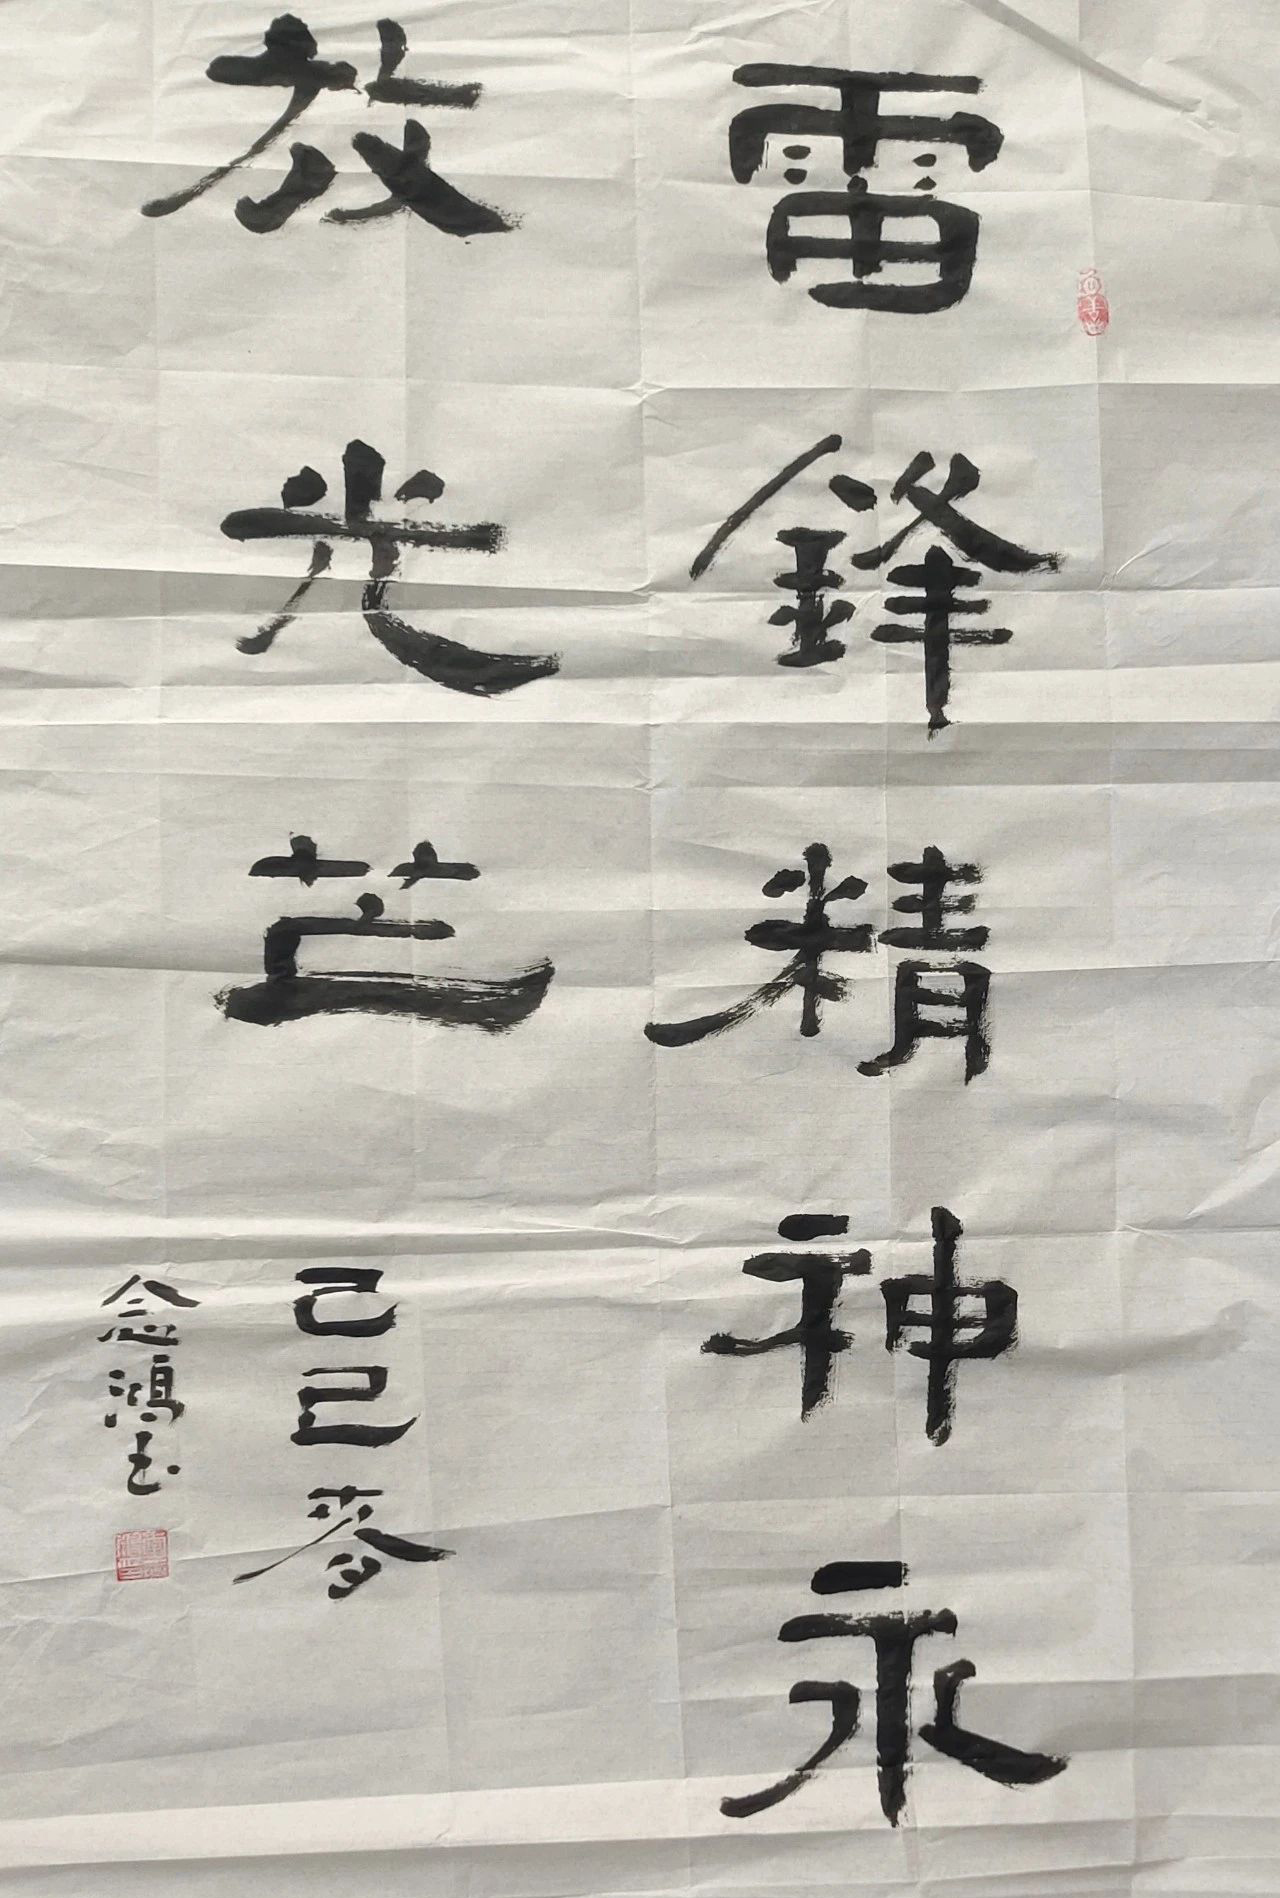 雷鋒精神永
放光芒
己巳
念鴻書